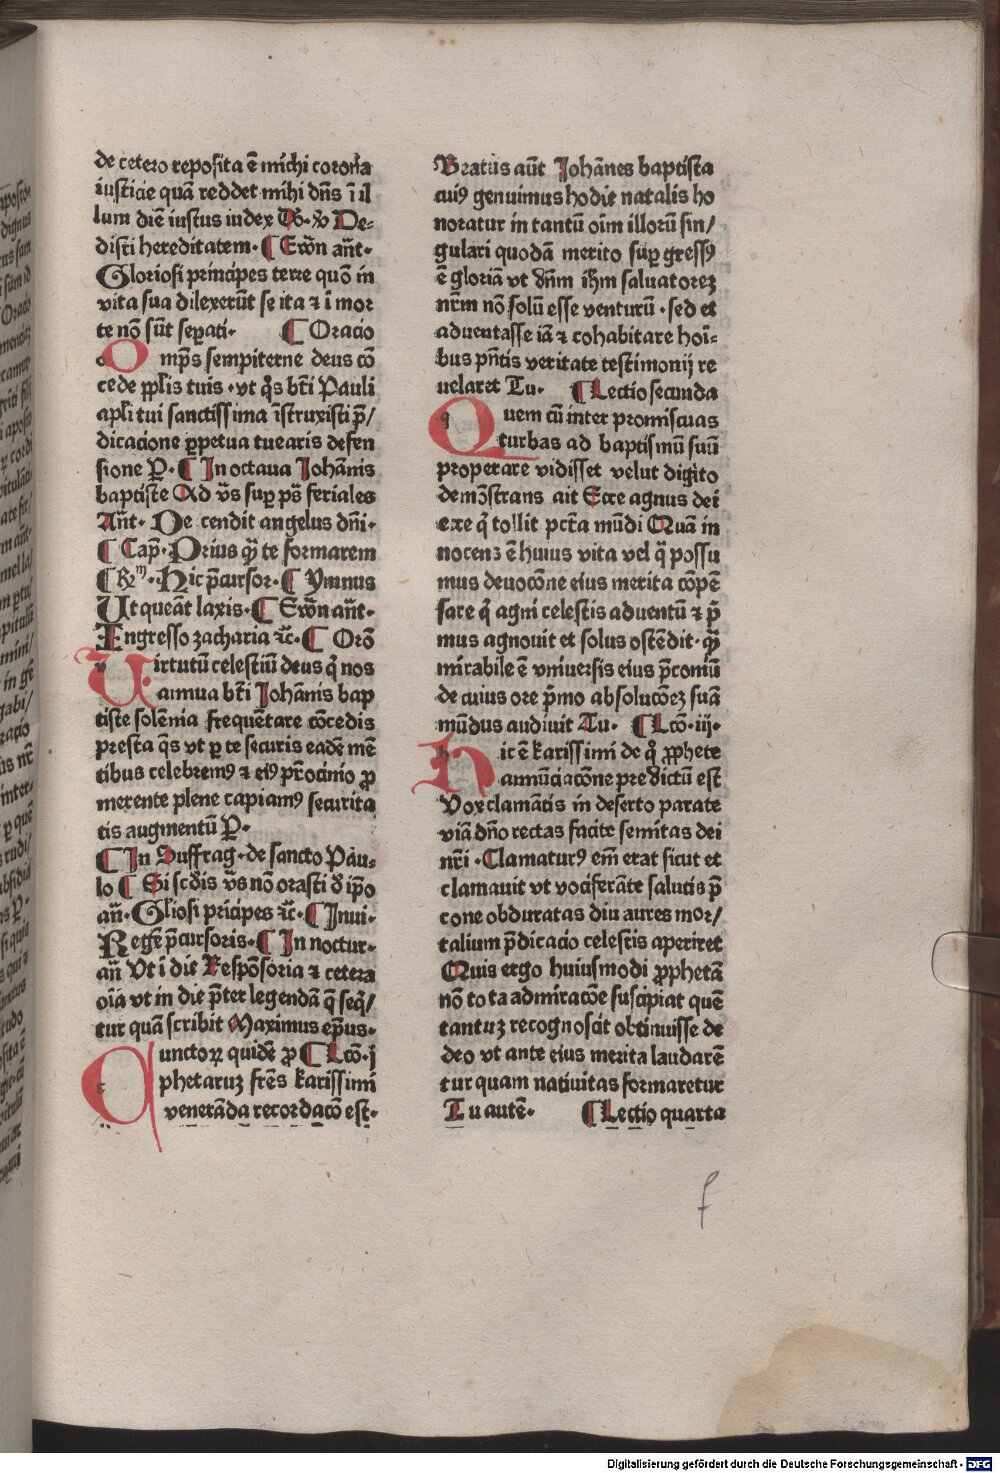 de cetero reposita ē michi corona
iusticie quā reddet mihi dn̄s ī il
lum diē iustus iudex V De-
disti hereditatem. ¶ Ewn̄ an̄t.
Gloriosi principes terre quō in
vita sua dilexerūt se ita ⁊ ī mor
te nō sūt seꝑati. ¶ Oracio
Omp̄s sempiterne deus cō
cede pp̄lis tuis. vt q̄s bt̄i Pauli
apl̄i tui sanctissima īstruxisti p̄/
dicacione ꝑpetua tuearis defen
sione ꝑ. ¶ In octaua Iohānis
baptiste Ad vs̄ suꝑ ps̄ feriales
An̄t. De cendit angelus dn̄i.
¶ Cap̄. Prius q̄ te formarem
¶ Rm. Hic p̄cursor. ¶ Ymnus
Ut queāt laxis. ¶ Ewn̄ an̄t.
Ingresso zacharia ⁊c̄. ¶ Orō
Uirtutū celestiū deus q̄ nos
annua bt̄i Iohānis bap
tiste solēnia frequētare cōcedis
presta q̄s vt ꝑ te securis eadē mē
tibus celebremꝰ ⁊ eiꝰ pr̄ocinio ꝓ
merente plene capiamꝰ securita
tis augmentū ꝑ.
¶ In Suffrag. de sancto Pau-
lo ¶ Si scd̄is vs̄ nō orasti d̄ ip̄o
an̄. Gliosi prīcipes ⁊c̄. ¶ Inui.
Regē p̄cursoris. ¶ In noctur.
an̄ Vt ī die Respōsoria ⁊ cetera
oīa vt in die p̄ter legendā q̄ seq̄/
tur quā scribit Maximus ep̄us.
Cunctoꝝ quidē ꝓ ¶ Lcō. j
phetaruz frēs karissimi
venerāda recordacō est.
Beatus aūt Iohānes baptista
cuiꝰ genuimus hodie natalis ho
noratur in tantū oīm illorū sin/
gulari quodā merito suꝑgressꝰ
ē gloriā vt dn̄m ih̄m saluatorez
nr̄m nō solū esse venturū. sed et
aduentasse iā ⁊ cohabitare hoī-
bus pn̄tis veritate testimonij re
uelaret Tu. ¶ Lectio secunda
Quem cū inter promiscuas
turbas ad baptismū suū
properare vidisset velut digito
demōstrans ait Ecce agnus dei
exe q̄ tollit pctā mūdi Quā in
nocenz ē huius vita vel q̄ possu
mus deuocōne eius merita cōpē
sare q̄ agni celestis aduentū ⁊ p̄
mus agnouit et solus ostēdit. q̄
mirabile ē vniuersis eius p̄coniū
de cuius ore p̄mo absolucōez suā
mūdus audiuit Tu. ¶ Lcō. iij.
Hic ē karissimi de q̄ ꝓphete
annūciacōne predictū est
Vox clamātis in deserto parate
viā dn̄o rectas facite semitas dei
nr̄i. Clamaturꝰ em̄ erat sicut et
clamauit vt vociferāte salutis p̄
cone obduratas diu aures mor/
talium p̄dicacio celestis aperiret
Quis ergo huiusmodi ꝓphetā
nō tota admiracōe suscipiat quē
tantuz recognoscit obtinuisse de
deo vt ante eius merita laudarē
tur quam natiuitas formaretur
Tu autē. ¶ Lectio quarta
f
Digitalisierung gefördert durch die Deutsche Forschungsgemeinschaft - DFG